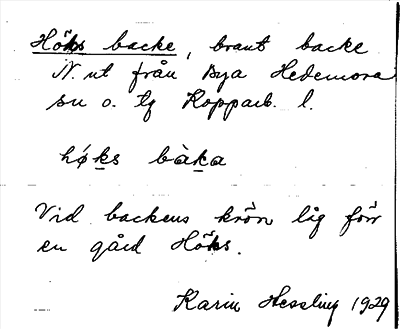 Höks backe, brant backe
N. ut från Bya Hedemora
sn o. tg Kopparb. l.
hǿks bàka
Vid backens krön låg förr
en gård Höks.
Karin Hessling 1929